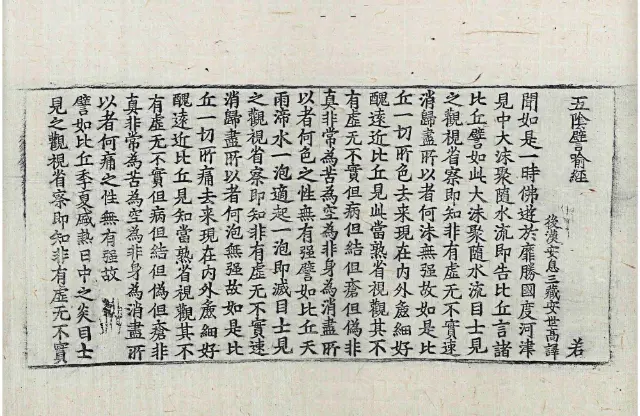 五陰譬喻經
後漢安息三藏安世高譯 若
聞如是一時佛遊於靡勝國度河津
見中大沫聚隨水流即告比丘言諸
比丘譬如此大沫聚隨水流目士見
之觀視省察即知非有虛无不實速
消歸盡所以者何沫無强故如是比
丘一切所色去來現在內外麁細好
醜遠近比丘見此當熟省視觀其不
有虛无不實但病但結但瘡但偽非
真非常為苦為空為非身為消盡所
以者何色之性無有强譬如比丘天
雨渧水一泡適起一泡即滅目士見
之觀視省察即知非有虛无不實速
消歸盡所以者何泡無强故如是比
丘一切所痛去來現在內外麁細好
醜遠近比丘見知當熟省視觀其不
有虛无不實但病但結但瘡但偽非
真非常為苦為空為非身為消盡所
以者何痛之性無有强故
譬如比丘季夏盛熱日中之炎目士
見之觀視省察即知非有虛无不實